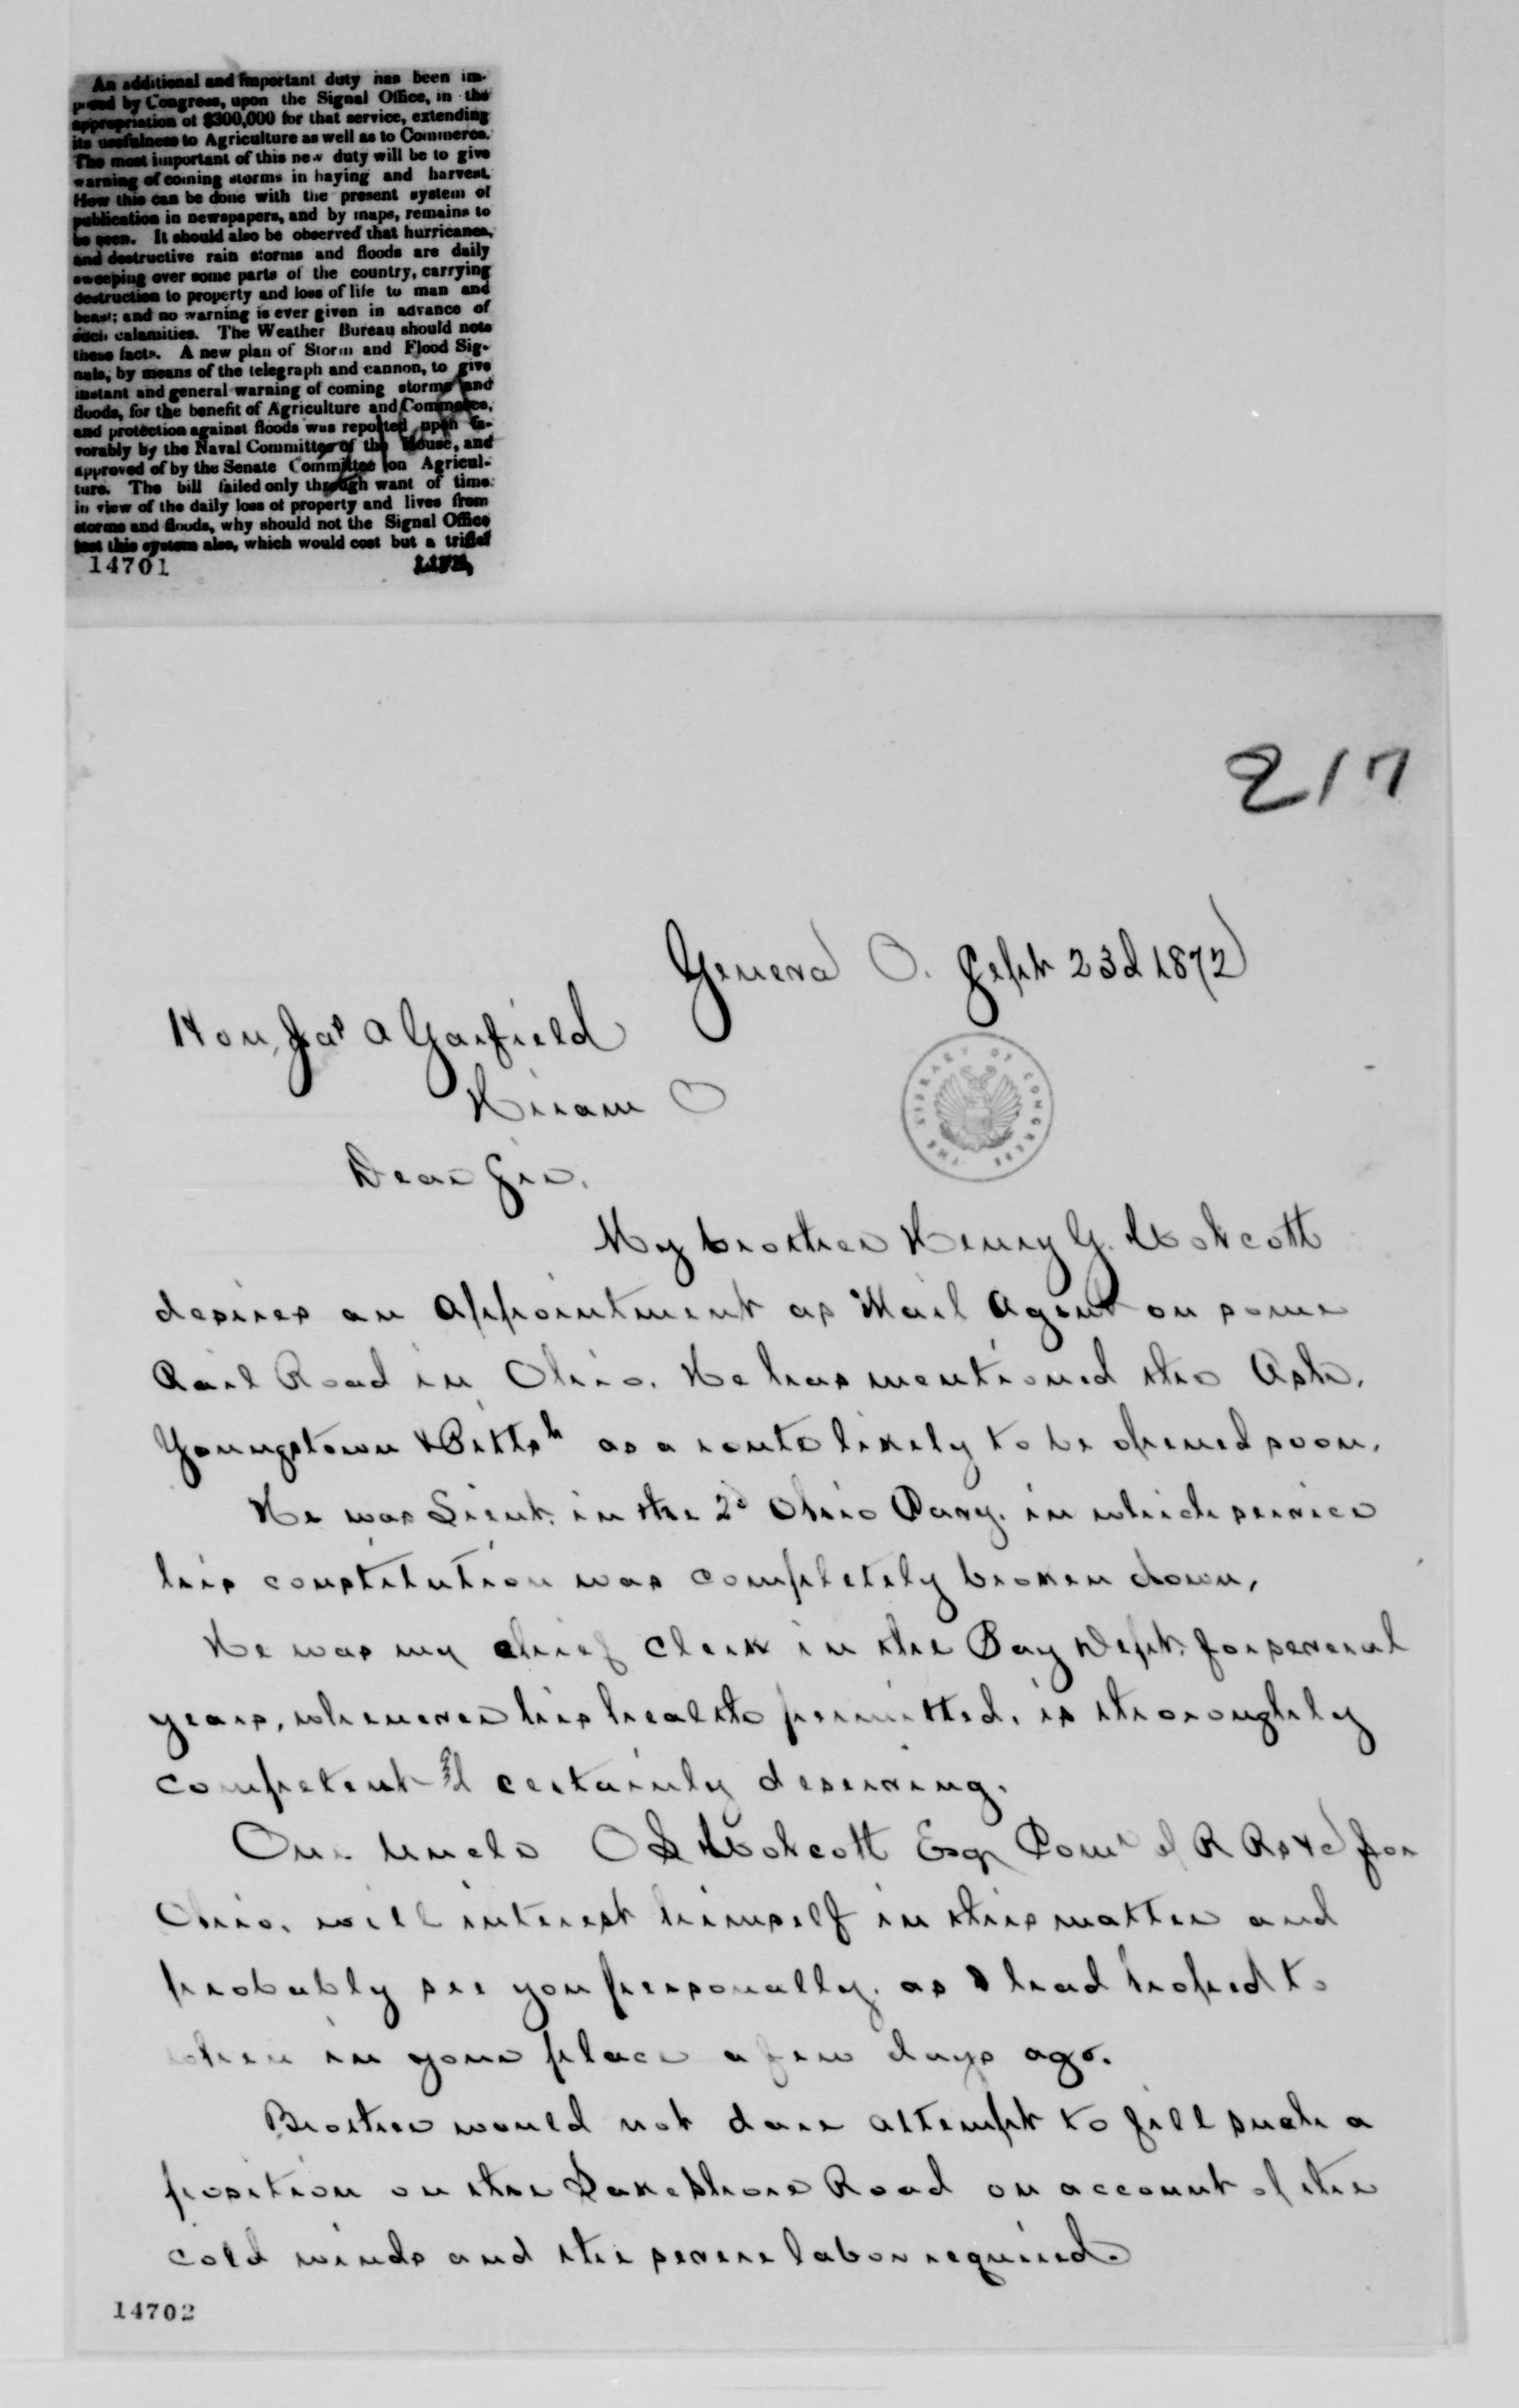 An additional and important duty has been im-
posed by Congress, upon the Signal Office, in the
appropriation of $300,000 for that service, extending
its usefulness to Agriculture as well as to Commerce.
The most important of this new duty will be to give
warning of coming storms in haying and harvest.
How this can be done with the present system of
publication in newspapers, and by maps, remains to
be seen. It should also be observed that hurricanes,
and destructive rain storms and floods are daily
sweeping over some parts of the country, carrying
destruction to property and loss of life to man and
beast; and no warning is ever given in advance of
such calamities. The Weather Bureau should note
these facts. A new plan of Storm and Flood Sig-
nals, by means of the telegraph and cannon, to give
instant and general warning of coming storms and
floods, for the benefit of Agriculture and Commerce,
and protection against floods was reported upon fa-
vorably by the Naval Committee of the House, and
approved of by the Senate Committee on Agricul-
ture. The bill failed only through want of time.
in view of the daily loss of property and lives from
storms and floods, why should not the Signal Office
test this system also, which would cost but a trifle?
14701
217
Geneva O. Sept 23d 1872
Hon, Jas A Garfield
Hiram O
Dear Sir,
THE LIBRARY OF CONGRESS
My brother Henry G. Wolcott
desires an appointment as Mail Agent on some
Rail Road in Ohio. He has mentioned the Ash,
Youngstown & Pittsh as a route likely to be opened soon.
He was Lieut. in the 2d Ohio Cavy. in which service
his constitution was completely broken down,
He was my chief clerk in the Pay Dept. for several
years, whenever his health permitted, is thoroughly
competent & certainly deserving.
Our Uncle O S Wolcott Esqr Comr of R Rs &c for
Ohio, will interest himself in this matter and
probably see you personally, as I had hoped to
when in your place a few days ago.
Brother would not dare attempt to fill such a
position on the Lake Shore Road on account of the
cold winds and the severe labor required.
14702